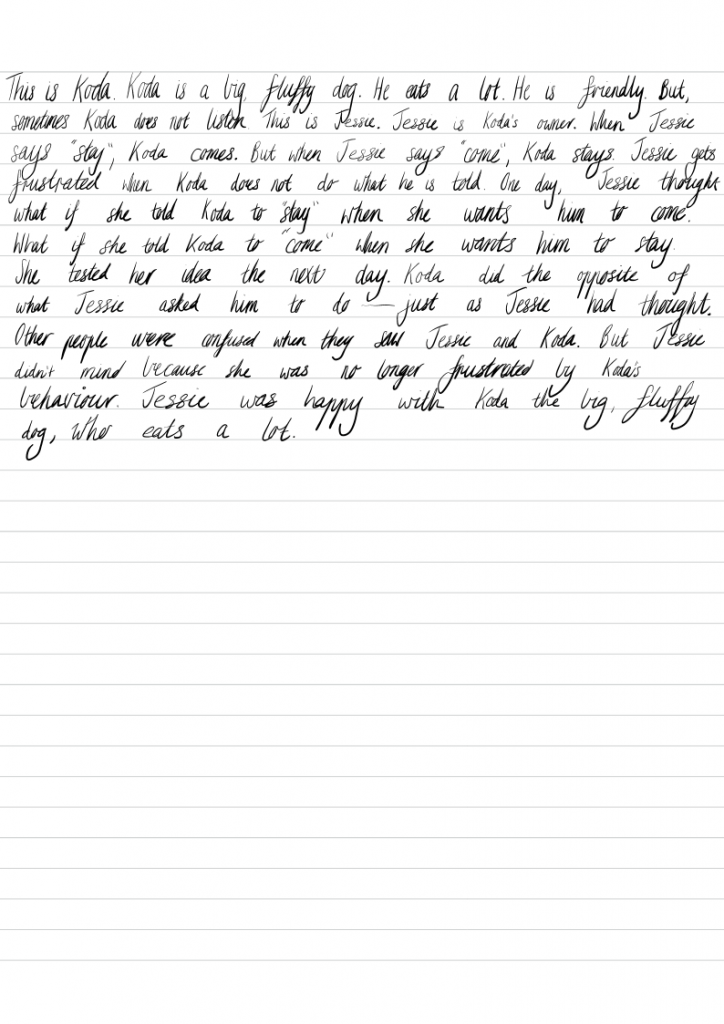 This is Koda. Koda is a big, fluffy dog. He eats a lot. He is friendly. But,
sometimes Koda does not listen. This is Jessie. Jessie is Koda's owner. When Jessie
says "stay", Koda comes. But when Jessie says "come", Koda stays. Jessie gets
frustrated when Koda does not do what he is told. One day, Jessie thought
what if she told Koda to "stay" when she wants him to come.
What if she told Koda to "come" when she wants him to stay.
She tested her idea the next day. Koda did the opposite of
what Jessie asked him to do — just as Jessie had thought.
Other people were confused when they saw Jessie and Koda. But Jessie
didn't mind because she was no longer frustrated by Koda's
behaviour. Jessie was happy with Koda the big, fluffy
dog, who eats a lot.